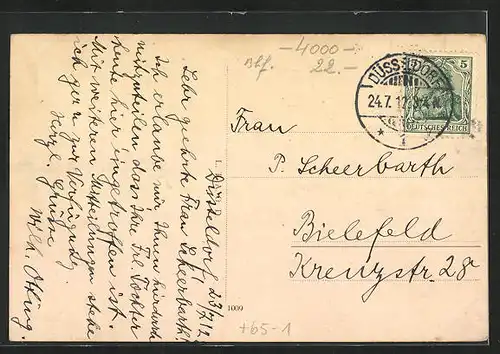 -4000-
Blf. 22.-
DÜSSELDORF
24.7.12. 3-4 N.
* 1 *
5
DEUTSCHES REICH
Frau
P. Scheerbarth
Bielefeld
Kreuzstr. 28
Düsseldorf 23/7 12.
Sehr geehrte Frau Scheerbarth!
Ich erlaube mir Ihnen hierdurch
mitzuteilen dass Ihre Frl. Tochter
heute hier eingetroffen ist.
Mit weiteren Mitteilungen stehe
ich gerne zur Verfügung.
Herzl. Grüsse
1009
+65-1